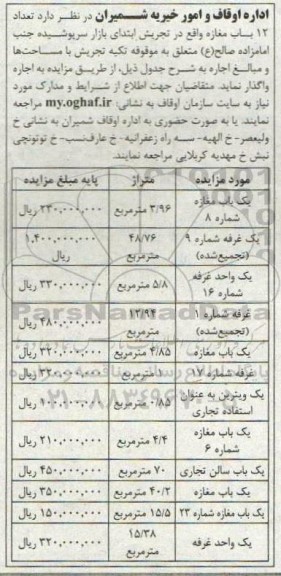 اداره اوقاف و امور خیریه شمیران در نظر دارد تعداد
۱۲ باب مغازه واقع در تجریش ابتدای بازار سرپوشیده جنب
امامزاده صالح(ع) متعلق به موقوفه تکیه تجریش با مساحت‌ها
و مبالغ اجاره به شرح جدول ذیل، از طریق مزایده به اجاره
واگذار نماید. متقاضیان جهت اطلاع از شرایط و مدارک مورد
نیاز به سایت سازمان اوقاف به نشانی: my.oghaf.ir مراجعه
نمایند. یا به صورت حضوری به اداره اوقاف شمیران به نشانی خ
ولیعصر- خ الهیه- سه راه زعفرانیه- خ عارف‌نسب- خ توتونچی
نبش خ مهدیه کربلایی مراجعه نمایند.
مورد مزایده متراژ پایه مبلغ مزایده
یک باب مغازه شماره ۸ ۳/۹۶ مترمربع ۲۴۰,۰۰۰,۰۰۰ ریال
یک غرفه شماره ۹ (تجمیع‌شده) ۴۸/۷۶ مترمربع ۱,۴۰۰,۰۰۰,۰۰۰ ریال
یک واحد غرفه شماره ۱۶ ۵/۸ مترمربع ۳۳۰,۰۰۰,۰۰۰ ریال
غرفه شماره ۱ (تجمیع‌شده) ۱۲/۹۴ مترمربع ۴۸۰,۰۰۰,۰۰۰ ریال
یک باب مغازه ۴/۸۵ مترمربع ۳۲۰,۰۰۰,۰۰۰ ریال
غرفه شماره ۱۷ مترمربع ریال
یک ویترین به عنوان استفاده تجاری ۰/۸۵ مترمربع ریال
یک باب مغازه شماره ۶ ۴/۴ مترمربع ۲۱۰,۰۰۰,۰۰۰ ریال
یک باب سالن تجاری ۷۰ مترمربع ۴۵۰,۰۰۰,۰۰۰ ریال
یک باب مغازه ۴۰/۲ مترمربع ۳۵۰,۰۰۰,۰۰۰ ریال
یک باب مغازه شماره ۲۳ ۱۵/۵ مترمربع ۱۵۰,۰۰۰,۰۰۰ ریال
یک واحد غرفه ۱۵/۳۸ مترمربع ۳۲۰,۰۰۰,۰۰۰ ریال